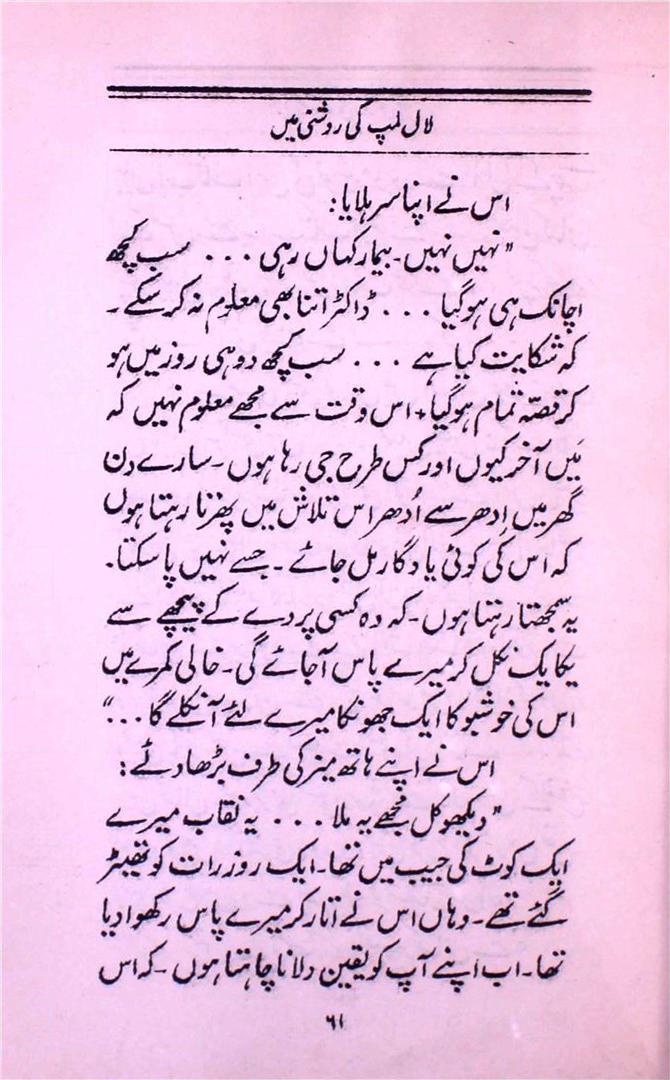 لال لمپ کی روشنی میں
اس نے اپنا سر ہلایا:
"نہیں نہیں۔ بیمار کہاں رہی ... سب کچھ
اچانک ہی ہوگیا ... ڈاکٹر اتنا بھی معلوم نہ کر سکے۔
کہ شکایت کیا ہے ... سب کچھ دو ہی روز میں ہو
کر قصہ تمام ہوگیا، اس وقت سے مجھے معلوم نہیں کہ
میں آخر کیوں اور کس طرح جی رہا ہوں۔ سارے دن
گھر میں اِدھر سے اُدھر اس تلاش میں پھرتا رہتا ہوں
کہ اس کی کوئی یادگار مل جائے۔ جسے نہیں پا سکتا.
یہ سمجھتا رہتا ہوں۔ کہ وہ کسی پردے کے پیچھے سے
یکایک نکل کر میرے پاس آجائے گی۔ خالی کمرے میں
اس کی خوشبو کا ایک جھونکا میرے لئے آ نکلے گا..."
اس نے اپنے ہاتھ میز کی طرف بڑھا دئے:
"دیکھو کل مجھے یہ ملا ... یہ نقاب میرے
ایک کوٹ کی جیب میں تھا۔ ایک روز رات کو تھیٹر
گئے تھے۔ وہاں اس نے اتار کر میرے پاس رکھوا دیا
تھا۔ اب اپنے آپ کو یقین دلانا چاہتا ہوں۔ کہ اس
۶۱